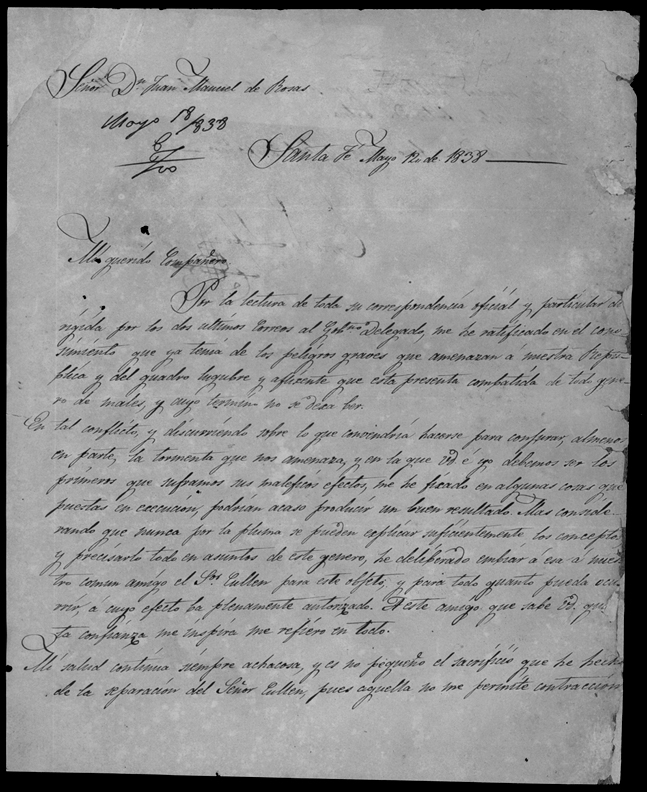 Señor Dn Juan Manuel de Rosas
Mayo 18/838
Santa Fé Mayo 12 de 1838
Mi querido Compañero
Por la lectura de toda su correspondencia oficial y particular di
rigida por los dos ultimos Correos al Gobno Delegado, me he ratificado en el cono-
simiento que ya tenia de los peligros graves que amenazan a nuestra Repu-
blica y del quadro lugubre y afligente que esta presenta combatida de todo gene
ro de males, y cuyo termino no se deja ber.
En tal conflicto, y discurriendo sobre lo que convendria hacerse para conjurar, al menos
en parte, la tormenta que nos amenaza, y en la que Vd é yo debemos ser los
primeros que suframos sus maleficos efectos, me he fixado en algunas cosas que
puestas en execución, podrian acaso producir un buen resultado. Mas conside-
rando que nunca por la pluma se pueden explicar suficientemente los conceptos
y precisarlo todo en asuntos de este genero, he deliberado embiar a esa a nues
tro comun amigo el Sor Cullen para este objeto, y para todo quanto pueda ocu
rrir, a cuyo efecto ba plenamente autorizado. A este amigo que sabe Vd. quan
ta confianza me inspira me refiero en todo.
Mi salud continúa siempre achacosa, y es no pequeño el sacrificio que he hecho
de la separación del Señor Cullen, pues aquella no me permite contracción